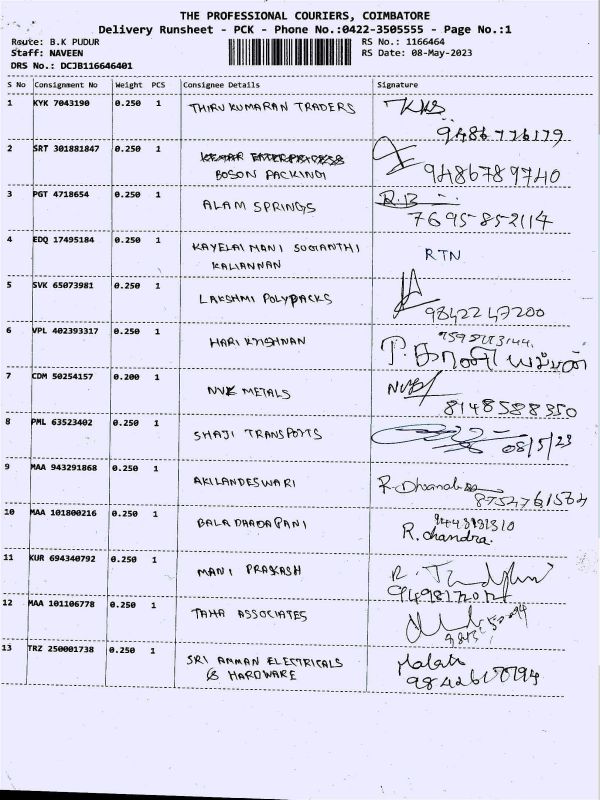 THE PROFESSIONAL COURIERS, COIMBATORE
Delivery Runsheet - PCK - Phone No.:0422-3505555 - Page No.:1
Route: B.K PUDUR
RS No.: 1166464
Staff: NAVEEN
RS Date: 08-May-2023
DRS No.: DCJB116646401
S No Consignment No Weight PCS Consignee Details Signature
1 KYK 7043190 0.250 1 THIRUKUMARAN TRADERS
9486776179
2 SRT 301881847 0.250 1
BOSON PACKING 9486789740
3 PGT 4718654 0.250 1 ALAM SPRINGS R.B
7695852114
4 EDQ 17495184 0.250 1 KAYELAI MANI SUGANTHI RTN
KALIANNAN
5 SVK 65073981 0.250 1 LAKSHMI POLYPACKS
9842247200
6 VPL 402393317 0.250 1 HARI KRISHNAN
7 CDM 50254157 0.200 1 NVK METALS
8148588350
8 PML 63523402 0.250 1 SHAJI TRANSPORTS 08/5/23
9 MAA 943291868 0.250 1 AKILANDESWARI
10 MAA 101800216 0.250 1 BALADHADAPANI
R.chandra.
11 KUR 694340792 0.250 1 MANI PRAKASH
12 MAA 101106778 0.250 1 TAHA ASSOCIATES
13 TRZ 250001738 0.250 1 SRI AMMAN ELECTRICALS
& HARDWARE